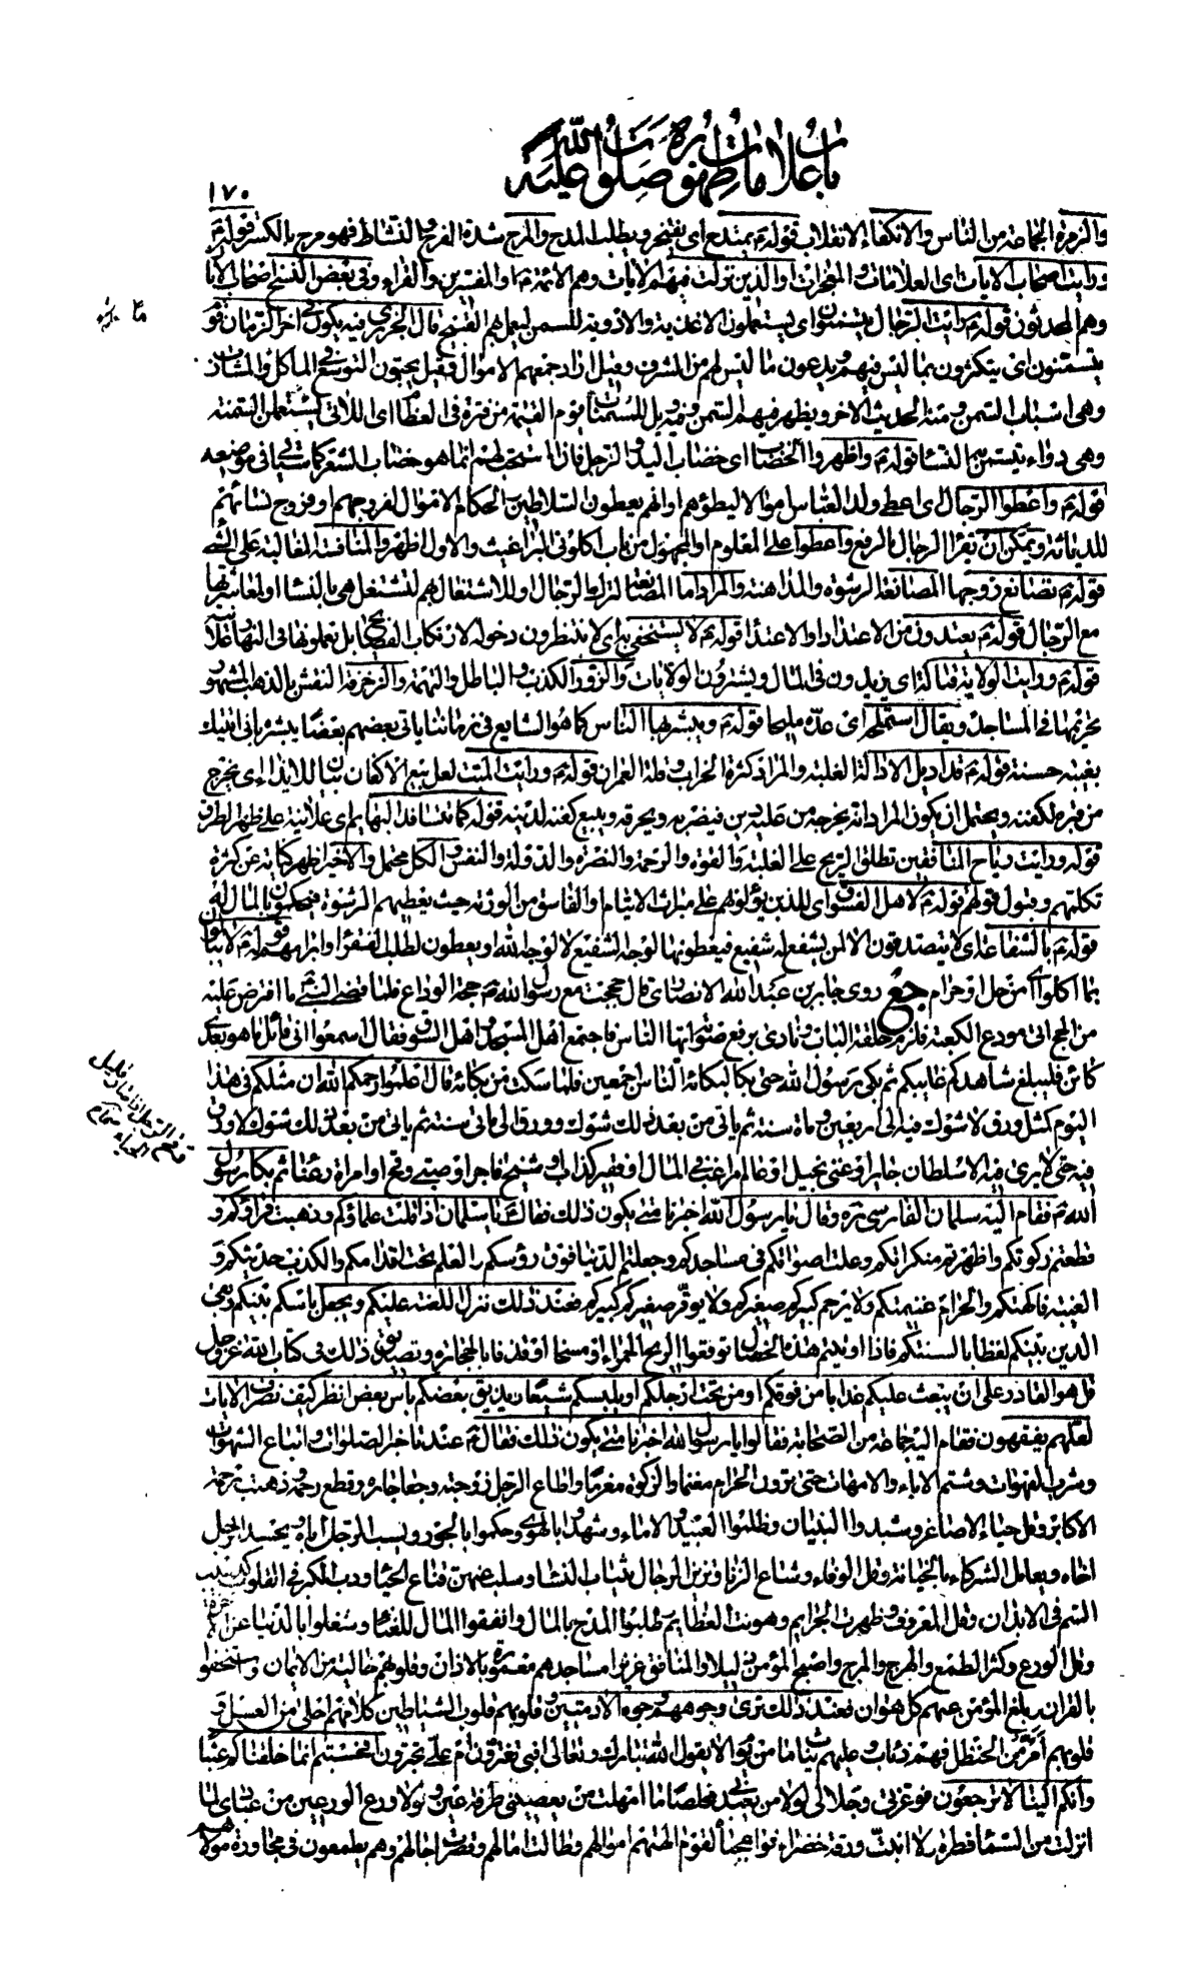 باب علامات ظهوره صلوات الله عليه
١٧٠
والزمرة الجماعة من الناس والانكفاء الانقلاب قوله ع يمتدح اى يفتخر ويطلب المدح والمرح شدة الفرح والنشاط فهو مرح بالكسر قوله ع
ورايت اصحاب الايات اى العلامات والمعجزات او الذين نزلت فيهم الايات وهم الائمة ع او المفسرين والقراء وفى بعض النسخ اصحاب الاثار
وهم المحدثون قوله ع رايت الرجال يتسمنون اى يستعملون الاغذية والادوية للسمن ليعمل بهم القبيح قال الجزرى فيه يكون فى اخر الزمان قوم
يتسمنون اى يتكثرون بما ليس فيهم ويدعون ما ليس لهم من الشرف وقيل اراد جمعهم الاموال وقيل يحبون التوسع فى الماكل والمشارب
وهى اسباب السمن ومنه الحديث الاخر ويظهر فيهم السمن وفيه ويل للمسمنات يوم القيمة من فترة فى العظام اى اللاتى يستعملن السمنة
وهى دواء يتسمن بها النساء قوله ع واظهروا الخضاب اى خضاب اليد والرجل فان المستحب لهم انما هو خضاب الشعر كما سياتى فى موضعه
قوله ع واعطوا الرجال اى اعطى ولد العباس اموالا ليطؤهم او انهم يعطون السلاطين والحكام الاموال لفروجهم او فروج نسائهم
للدياثة ويمكن ان يقرا الرجال بالرفع واعطوا على المعلوم او المجهول من باب اكلونى البراغيث والاول اظهر والمنافسة المغالبة على الشئ
قوله ع تصانع زوجها المصانعة الرشوة والمداهنة والمراد اما المصانعة لترك الرجال وللاشتغال بهم لتشتغل هى بالنساء او لمعاشرتها
مع الرجال قوله ع يعتدون من الاعتداد او الاعتداء قوله ع لا يستخفى به اى لا ينتظرون دخوله لارتكاب الفضايح بل يعملونها فى النهار علانية
قوله ع ورايت الولاية قبالة اى يزيدون فى المال ويشترون الولايات والزور الكذب والباطل والتهمة والزخرفة النقش بالذهب المشهور
تحريمها فى المساجد ويقال استملحه اى عده مليحا قوله ع ويبشر بها الناس كما هو الشايع فى زماننا ياتى بعضهم بعضا يبشره بانى اتيتك
بغيبة حسنة قوله ع قد اديل الادالة الغلبة والمراد كثرة الخراب وقلة العمران قوله ع ورايت الميت لعل بيع الاكفان بيان للايذاء اى يخرج
من قبره لكفنه ويحتمل ان يكون المراد انه يخرجه من عليه دين فيضربه ويحرقه ويبيع كفنه لدينه قوله كما تتسافد البهايم اى علانية على ظهر الطرق
قوله ورايت رياح المنافقين تطلق الريح على الغلبة والقوة والرحمة والنصرة والدولة والنفس والكل محتمل والاخير اظهر كناية عن كثرة
تكلمهم وقبول قولهم قوله ع لاهل الفسوق اى للذين يولونهم على ميراث الايتام والفاسق من الورثة حيث يعطيهم الرشوة فيحكمون بالمال له
قوله ع بالشفاعة اى لا يتصدقون الا لمن يشفع له شفيع فيعطونها لوجه الشفيع لا لوجه الله او يعطون لطلب الفقراء وابرامهم قوله ع لا يبالون
بما اكلوا اى من حل او حرام جع روى جابر بن عبد الله الانصارى قال حججت مع رسول الله ص حجة الوداع فلما قضى النبى ص ما افترض عليه
من الحج اتى مودع الكعبة فلزم حلقة الباب ونادى برفع صوته ايها الناس فاجتمع اهل المسجد واهل السوق فقال اسمعوا انى قائل ما هو بعدى
كائن فليبلغ شاهدكم غايبكم ثم بكى رسول الله حتى بكى لبكائه الناس اجمعين فلما سكت من بكائه قال اعلموا رحمكم الله ان مثلكم فى هذا
اليوم كمثل ورق لا شوك فيه الى اربعين وماة سنة ثم ياتى من بعد ذلك شوك وورق الى ماتى سنة ثم ياتى من بعد ذلك شوك لا ورق
فيه حتى لا يرى فيه الا سلطان جاير او غنى بخيل او عالم مراغب فى المال او فقير كذاب او شيخ فاجر او صبى وقح او امراة رعناء ثم بكى رسول
الله ص فقام اليه سلمان الفارسى ره وقال يا رسول الله اخبرنا متى يكون ذلك فقال ص يا سلمان اذا قلت علماؤكم وذهبت قراؤكم و
قطعتم زكوتكم واظهرتم منكراتكم وعلت اصواتكم فى مساجدكم وجعلتم الدنيا فوق رؤسكم والعلم تحت اقدامكم والكذب حديثكم و
الغيبة فاكهتكم والحرام غنيمتكم ولا يرحم كبيركم صغيركم ولا يوقر صغيركم كبيركم فعند ذلك تنزل اللعنة عليكم ويجعل باسكم بينكم وبقى
الدين بينكم لفظا بالسنتكم فاذا اوتيتم هذه الخصال توقعوا الريح الحمراء او مسخا او قذفا بالحجارة وتصديق ذلك فى كتاب الله عز وجل
قل هو القادر على ان يبعث عليكم عذابا من فوقكم او من تحت ارجلكم او يلبسكم شيعا ويذيق بعضكم باس بعض انظر كيف نصرف الايات
لعلهم يفقهون فقام اليه جماعة من الصحابة فقالوا يا رسول الله اخبرنا متى يكون ذلك فقال ص عند تاخير الصلوات واتباع الشهوات
وشرب القهوات وشتم الاباء والامهات حتى ترون الحرام مغنما والزكوة مغرما واطاع الرجل زوجته وجفا جاره وقطع رحمه وذهبت رحمة
الاكابر وقل حياء الاصاغر وشيدوا البنيان وظلموا العبيد والاماء وشهدوا بالهوى وحكموا بالجور ويسب الرجل اباه ويحسد الرجل
اخاه ويعامل الشركاء بالخيانة وقل الوفاء وشاع الزنا وتزين الرجال بثياب النساء وسلب عنهن قناع الحياء ودب الكبر فى القلوب كدبيب
السم فى الابدان وقل المعروف وظهرت الجرايم وهونت العظايم وطلبوا المدح بالمال وانفقوا المال للغناء وشغلوا بالدنيا عن الاخرة
وقل الورع وكثر الطمع والهرج والمرج واصبح المؤمن ذليلا والمنافق عزيزا مساجدهم معمورة بالاذان وقلوبهم خالية من الايمان واستخفوا
بالقران وبلغ المؤمن عنهم كل هوان فعند ذلك ترى وجوههم وجوه الادميين وقلوبهم قلوب الشياطين كلامهم احلى من العسل و
قلوبهم امر من الحنظل فهم ذئاب وعليهم ثياب ما من يوم الا يقول الله تبارك وتعالى افبى تغترون ام على تجترون افحسبتم انما خلقناكم عبثا
وانكم الينا لا ترجعون فوعزتى وجلالى لولا من يعبدنى مخلصا ما امهلت من يعصينى طرفة عين ولولا ورع الورعين من عبادى لما
انزلت من السماء قطرة ولا انبت ورقة خضراء فواعجباه لقوم الهتهم اموالهم وطالت امالهم وقصرت اجالهم وهم يطمعون فى مجاورة مولاهم